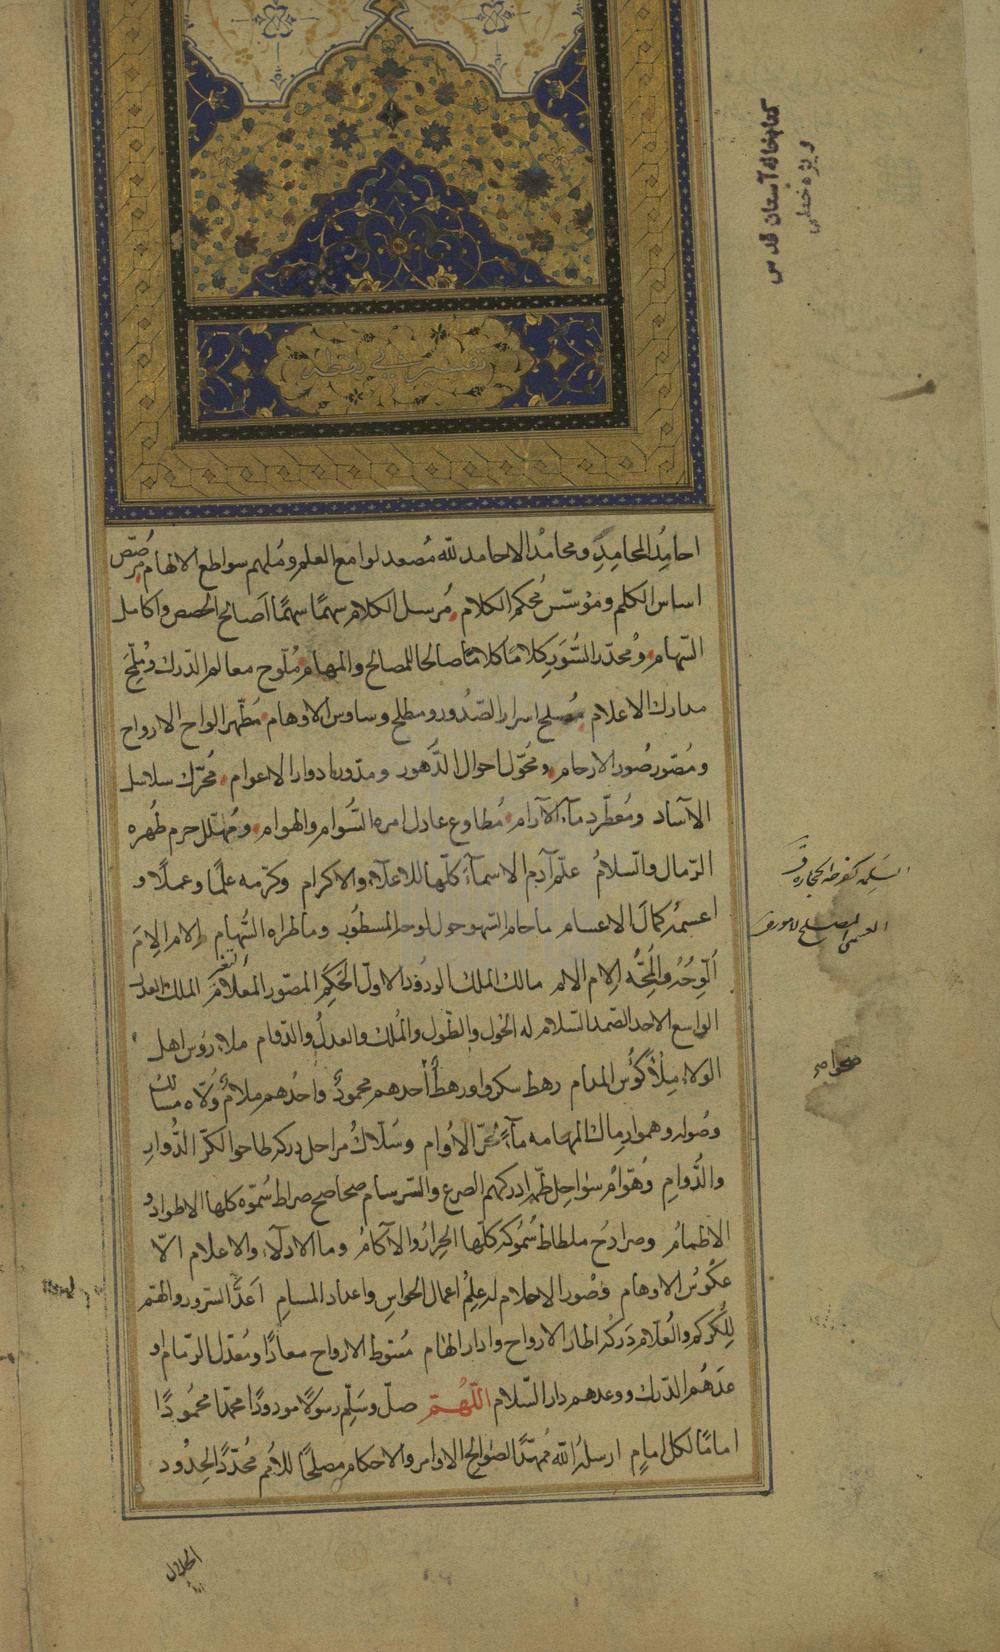 تفسیر بی نقطه
کتابخانه آستان قدس
ویژه خطی
احامد المحامد و محامد الاحامد لله مصعد لوامع العلم و ملهم سواطع الالهام مرصص
اساس الکلم و مؤسس محکم الکلام مرسل الکلام سهما سهما اصالح الحصص و اکامل
السهام و محدر السور کلاما کلاما صالحا للمصالح و المهام ملوح معالم الدرک و ملمح
مدارک الاعلام مصلح اسرار الصدور و مطلح وساوس الاوهام مطهر الواح الارواح
و مصور صور الارحام و محول احوال الدهور و مدور ادوار الاعوام محرک سلاسل
الآساد و معطر دماء الآرام مطاوع عادل امره السوام و الهوام و مهلل حرم طهره
الرمال والسلام علم آدم الاسماء کلها للاعلاء والاکرام و کرمه علما و عملا و
اعسمه کمال الاعسام ما حام السهو حول لوحه المسطور و ما طراه السهام
الالم مالک الملک الودود الاول الحکم المصور العلام الملک العدل
الواسع الاحد الصمد السلام له الحول والطول والملک والعدل والدوام ملاء روس اهل
الولاء ملأ کؤس المدام رهط سکروا و رهط احدهم محمود و احدهم ملام
مسالک
وصوله و هموا درماک المهامه ماء محر الاوام و سلاک مراحل درکه طاحوا لکر الدوار
والدوام و هوام سواحل طهر ادرکهم الصرع والسرسام صحاصح صراط سموه کلها الاطواد و
الاطمام و صرادح ملطاط سموکه کلها الحرار والآکام و ما الادلاء والاعلام الا
عکوس الاوهام و صور الاحلام له علم اعمال الحواس و اعداد المسام اعد السرور والهم
للکرکم والعلام درکه اطار الارواح و ادار الهام مسوط الارواح معادا و معدل الرمام او
عدهم الدرک و وعدهم دار السلام اللهم صل و سلم رسولا مودودا محمدا محمودا
اماما لکل امام ارسله الله ممهدا لصوالح الاوامر والاحکام مصلحا للامم محددا لحدود
الحلال